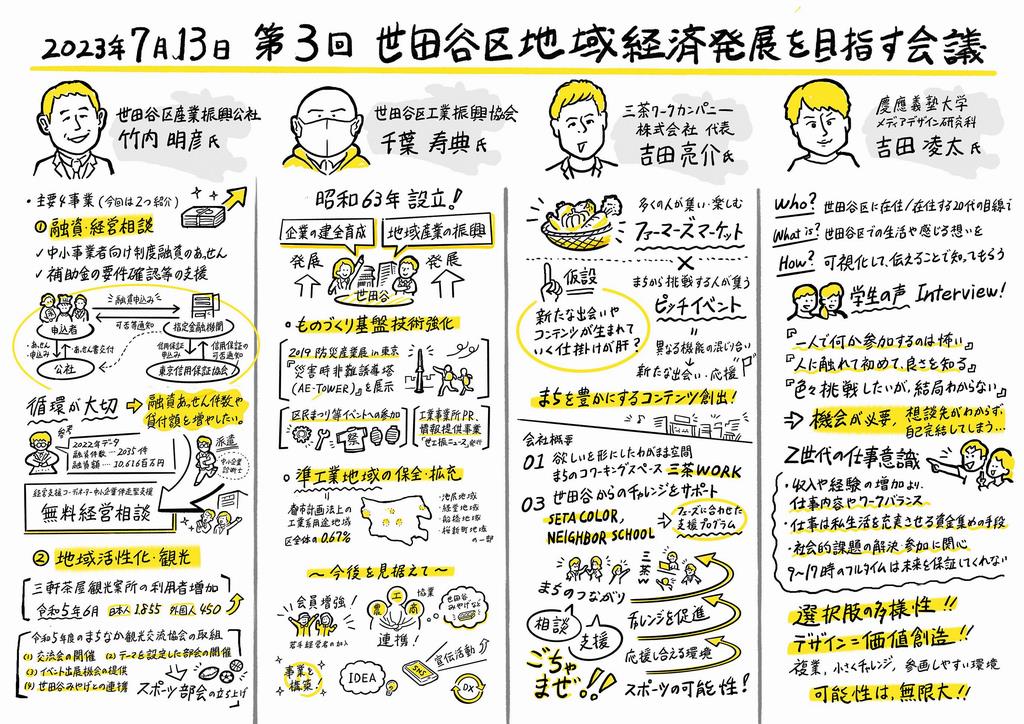 2023年7月13日 第3回 世田谷区地域経済発展を目指す会議
世田谷区産業振興公社
竹内 明彦氏
・主要4事業(今回は2つ紹介)
① 融資・経営相談
✓中小事業者向け制度融資のあっせん
✓補助金の要件確認等の支援
融資申込み
申込者
可否等通知
指定金融機関
・あっせん申込み
あっせん書交付
信用保証申込み
信用保証の可否通知
公社
東京信用保証協会
循環が大切
融資あっせん件数や
貸付額を増やしたい。
参考
2022年データ
融資件数…2035件
融資額…10,616百万円
派遣
中小企業診断士
経営支援コーディネーター中小企業伴走型支援
無料経営相談
② 地域活性化・観光
三軒茶屋観光案内所の利用者増加
令和5年6月 日本人1855 外国人450
令和5年度のまちなか観光交流協会の取組
(1) 交流会の開催 (2) テーマを設定した部会の開催
(3) イベント出展機会の提供
(4) 世田谷みやげとの連携
スポーツ部会の立ち上げ
世田谷区工業振興協会
千葉 寿典氏
昭和63年設立!
企業の建全育成
地域産業の振興
発展
発展
世田谷
・ものづくり基盤技術強化
2019 防災産業展 in 東京
『災害時非難誘導塔
(AE-TOWER)』を展示
区民まつり等イベントへの参加
祭
工業事業所PR、
情報提供事業
「世工振ニュース」発行
・準工業地域の保全・拡充
都市計画法上の
工業系用途地域
区全体の0.67%
・池尻地域
・経堂地域
・船橋地域
・桜新町地域
の一部
〜今後を見据えて〜
会員増強!
若手経営者の加入
農
工
商
協業
連携!
世田谷みやげなど
事業を
構築
IDEA
SNS
宣伝活動
DX
三茶ワークカンパニー
株式会社 代表
吉田亮介氏
多くの人が集い・楽しむ
ファーマーズマーケット
×
仮設
新たな出会いや
コンテンツが生まれて
いく仕掛けが肝?
まちから挑戦する人が集う
ピッチイベント
異なる機能の混じり合い
新たな出会い・応援
まちを豊かにするコンテンツ創出!
会社概要
01 欲しいを形にしたわがまま空間
まちのコワーキングスペース 三茶WORK
03 世田谷からのチャレンジをサポート
SETA COLOR,
NEIGHBOR SCHOOL
フェーズに合わせた
支援プログラム
三茶W
まちのつながり
相談
支援
チャレンジを促進
応援し合える環境
ごちゃ
まぜ!!
スポーツの可能性!
慶應義塾大学
メディアデザイン研究科
吉田 凌太氏
Who? 世田谷区に在住/在住する20代の目線で
What is? 世田谷区での生活や感じる想いを
How? 可視化して、伝えることで知ってもらう
学生の声 Interview!
『一人で何か参加するのは怖い』
『人に触れて初めて、良さを知る』
『色々挑戦したいが、結局わからない』
→ 機会が必要, 相談先がわからず
自己完結してしまう…
Z世代の仕事意識
・収入や経験の増加より、
仕事内容やワークバランス
・仕事は私生活を充実させる資金集めの手段
・社会的課題の解決・参加に関心
9〜17時のフルタイムは未来を保証してくれない
選択肢の多様性!!
デザイン=価値創造!!
複業, 小さくチャレンジ, 参画しやすい環境
可能性は、無限大!!